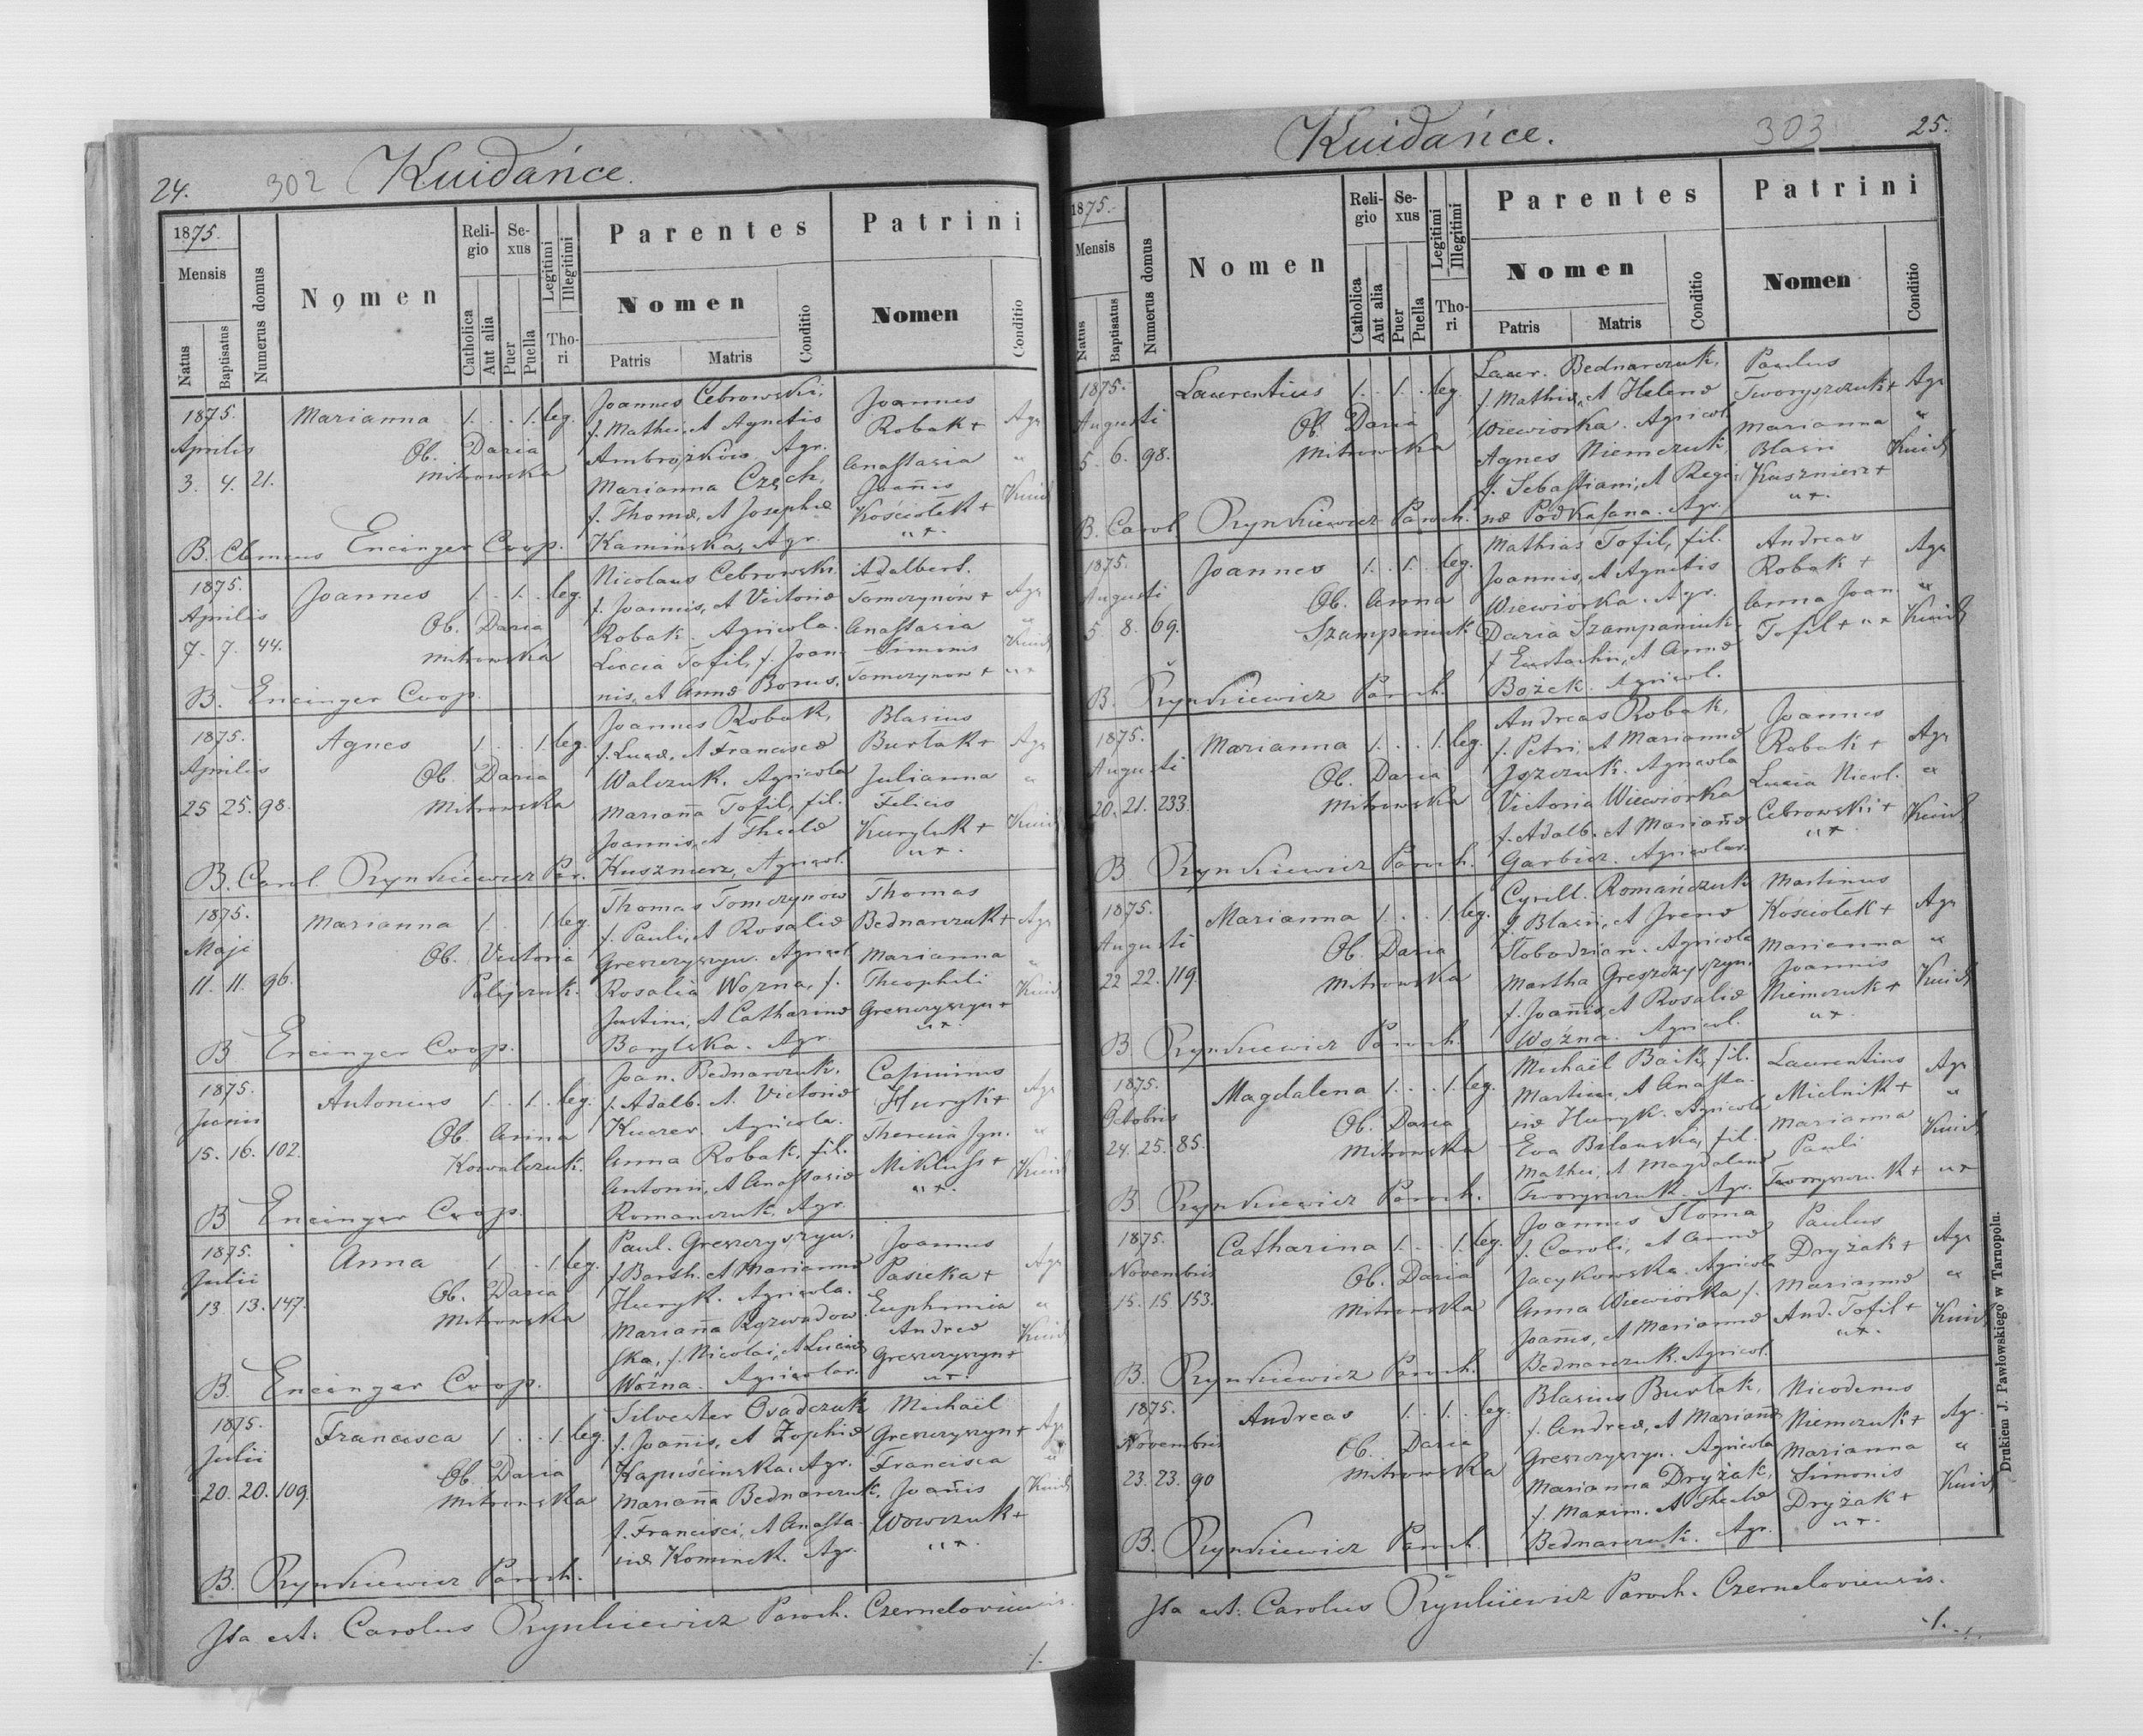 24. 302 Kuidańce.
1875.
Mensis
Natus
Baptisatus
Numerus domus
Nomen
Religio
Catholica
Aut alia
Sexus
Puer
Puella
Legitimi
Illegitimi
Thori
Parentes
Nomen
Patris
Matris
Conditio
Patrini
Nomen
Conditio
1875. Marianna 1. . . 1. leg. Joannes Cebrowski, Joannes
Aprilis Ob. Daria f. Mathei, et Agnetis Robak + Agr
3. 4. 21. Mitrowska Ambrożków. Agr. Anastasia "
Marianna Czech, Joannis
f. Thomæ, et Josephæ Kościołek + Kuid
B. Clemens Encinger Coop. Kamińska, Agr. " +.
1875. Joannes 1. . 1. . leg. Nicolaus Cebrowski Adalbert.
Aprilis Ob. Daria f. Joannis, et Victoriæ Tomczynów + Agr
7. 7. 44. Mitrowska Robak. Agricola. Anastasia "
Luccia Tofil, f. Joan- Simonis Kuid
B. Encinger Coop. nis, et Annæ Borus. Tomczynow + " +
1875. Agnes 1. . . 1. leg. Joannes Robak, Blasius
Aprilis Ob. Daria f. Lucæ, et Franciscæ Burlak + Agr
25 25. 98. Mitrowska Walczuk. Agricola Julianna "
Marianna Tofil, fil. Felicis
Joannis, et Theclæ Kuryluk + Kuid
B. Carol. Rynkiewicz Par. Kuszmierz, Agricol. " +.
1875. Marianna 1. . 1. leg. Thomas Tomczynow Thomas
Maji Ob. Victoria f. Pauli, et Rosaliæ Bednarczuk + Agr
11. 11. 96. Palijczuk. Greszczyszyn. Agricol. Marianna "
Rosalia Wozna, f. Theophili Kuid
Justini, et Catharinæ Greszczyszyn +
B Encinger Coop. Barylska. Agr. " +.
1875. Antonius 1. . 1. . leg. Joan. Bednarczuk, Casimirus
Junii Ob. Anna f. Adalb. et Victoriæ Huryk + Agr
15. 16. 102. Kowalczuk. Kuczer. Agricola. Theresia Ign. "
Anna Robak, fil. Miklusz + Kuid
Antonii, et Anastasiæ " +.
B Encinger Coop. Romanczuk, Agr.
1875. Anna 1. . . 1. leg. Paul. Greszczyszyn, Joannes
Julii Ob. Daria f. Barth. et Mariannæ Pasieka + Agr
13. 13. 147. Mitrowska Huryk. Agricola. Euphemia "
Marianna Rozwadow- Andreæ Kuid
ska, f. Nicolai, et Luciæ Greszczyszyn +
B. Encinger Coop. Woźna. Agricolar. " +.
1875. Francisca 1. . . 1. leg. Silvester Osadczuk Michaël
Julii Ob. Daria f. Joannis, et Zophiæ Greszczyszyn + Agr
20. 20. 109. Mitrowska Kapuścinska, Agr. Francisca "
Marianna Bednarczuk, Joannis Kuid
f. Francisci, et Anasta- Wowczuk +
B. Rynkiewicz Paroch. siæ Kominek. Agr. " +.
Ita est: Carolus Rynkiewicz Paroch. Czerneloviensis.
./.
Kuidańce. 303 25.
1875.
Mensis
Natus
Baptisatus
Numerus domus
Nomen
Religio
Catholica
Aut alia
Sexus
Puer
Puella
Legitimi
Illegitimi
Thori
Parentes
Nomen
Patris
Matris
Conditio
Patrini
Nomen
Conditio
1875. Laurentius 1. . 1. . leg. Laur. Bednarczuk, Paulus
Augusti Ob. Daria f. Mathiæ, et Helenæ Tworyszczuk + Agr
5. 6. 98. Mitrowska Wiewiorka. Agricol. Marianna "
Agnes Niemczuk, Blasii Kuid
f. Sebastiani, et Regi- Kuszmierz +
B. Carol Rynkiewicz Paroch. næ Podkasana. Agr. " +.
1875. Joannes 1. . 1. . leg. Mathias Tofil, fil. Andreas
Augusti Ob. Anna Joannis, et Agnetis Robak + Agr
5 8. 69. Szampaniuk Wiewiórka. Agr. Anna Joan. "
Daria Szampaniuk Tofil + " + Kuid
f. Eustachii, et Annæ
B. Rynkiewicz Paroch. Bożek. Agricol.
1875. Marianna 1. . . 1. leg. Andreas Robak, Joannes
Augusti Ob. Daria f. Petri, et Mariannæ Robak + Agr
20. 21. 233. Mitrowska Iszczuk. Agricola Lucia Nicol. "
Victoria Wiewiorka Cebrowski + Kuid
f. Adalb. et Mariannæ " +.
B Rynkiewicz Paroch. Garbicz. Agricolar.
1875. Marianna 1. . . 1. leg. Cyrill. Romańczuk Martinus
Augusti Ob. Daria f. Blasii, et Irenæ Kościołek + Agr
22 22. 119. Mitrowska Słobodzian. Agricola Marianna "
Martha Greszczyszyn, Joannis
f. Joannis, et Rosaliæ Niemczuk + Kuid
B Rynkiewicz Paroch. Woźna. Agricol. " +.
1875. Magdalena 1. . . 1. leg. Michaël Baik, fil. Laurentius
Octobris Ob. Daria Martini, et Anasta- Mielnik + Agr
24. 25. 85. Mitrowska siæ Huryk. Agricola Marianna "
Eva Bilauska, fil. Pauli Kuid
Mathei, et Magdalenæ
B Rynkiewicz Paroch. Tworyszczuk. Agr. Tworyszczuk + " +
1875. Catharina 1. . . 1. leg. Joannes Słoma Paulus
Novembris Ob. Daria f. Caroli, et Annæ Dryżak + Agr
15. 15 153. Mitrowska Jacykowska. Agricola Marianna "
Anna Wiewiorka, f. And. Tofil + Kuid
Joannis, et Mariannæ " +.
B. Rynkiewicz Paroch. Bednarczuk. Agricol.
1875. Andreas 1. . 1. . leg. Blasius Burlak, Nicodemus
Novembris Ob. Daria f. Andreæ, et Mariannæ Niemczuk + Agr.
23. 23. 90 Mitrowska Greszczyszyn. Agricola Marianna "
Marianna Dryżak, Simonis Kuid
f. Maxim. et Theclæ Dryżak +
B. Rynkiewicz Paroch. Bednarczuk. Agr. " +.
Ita est: Carolus Rynkiewicz Paroch. Czerneloviensis.
./.
Drukiem J. Pawłowskiego w Tarnopolu.